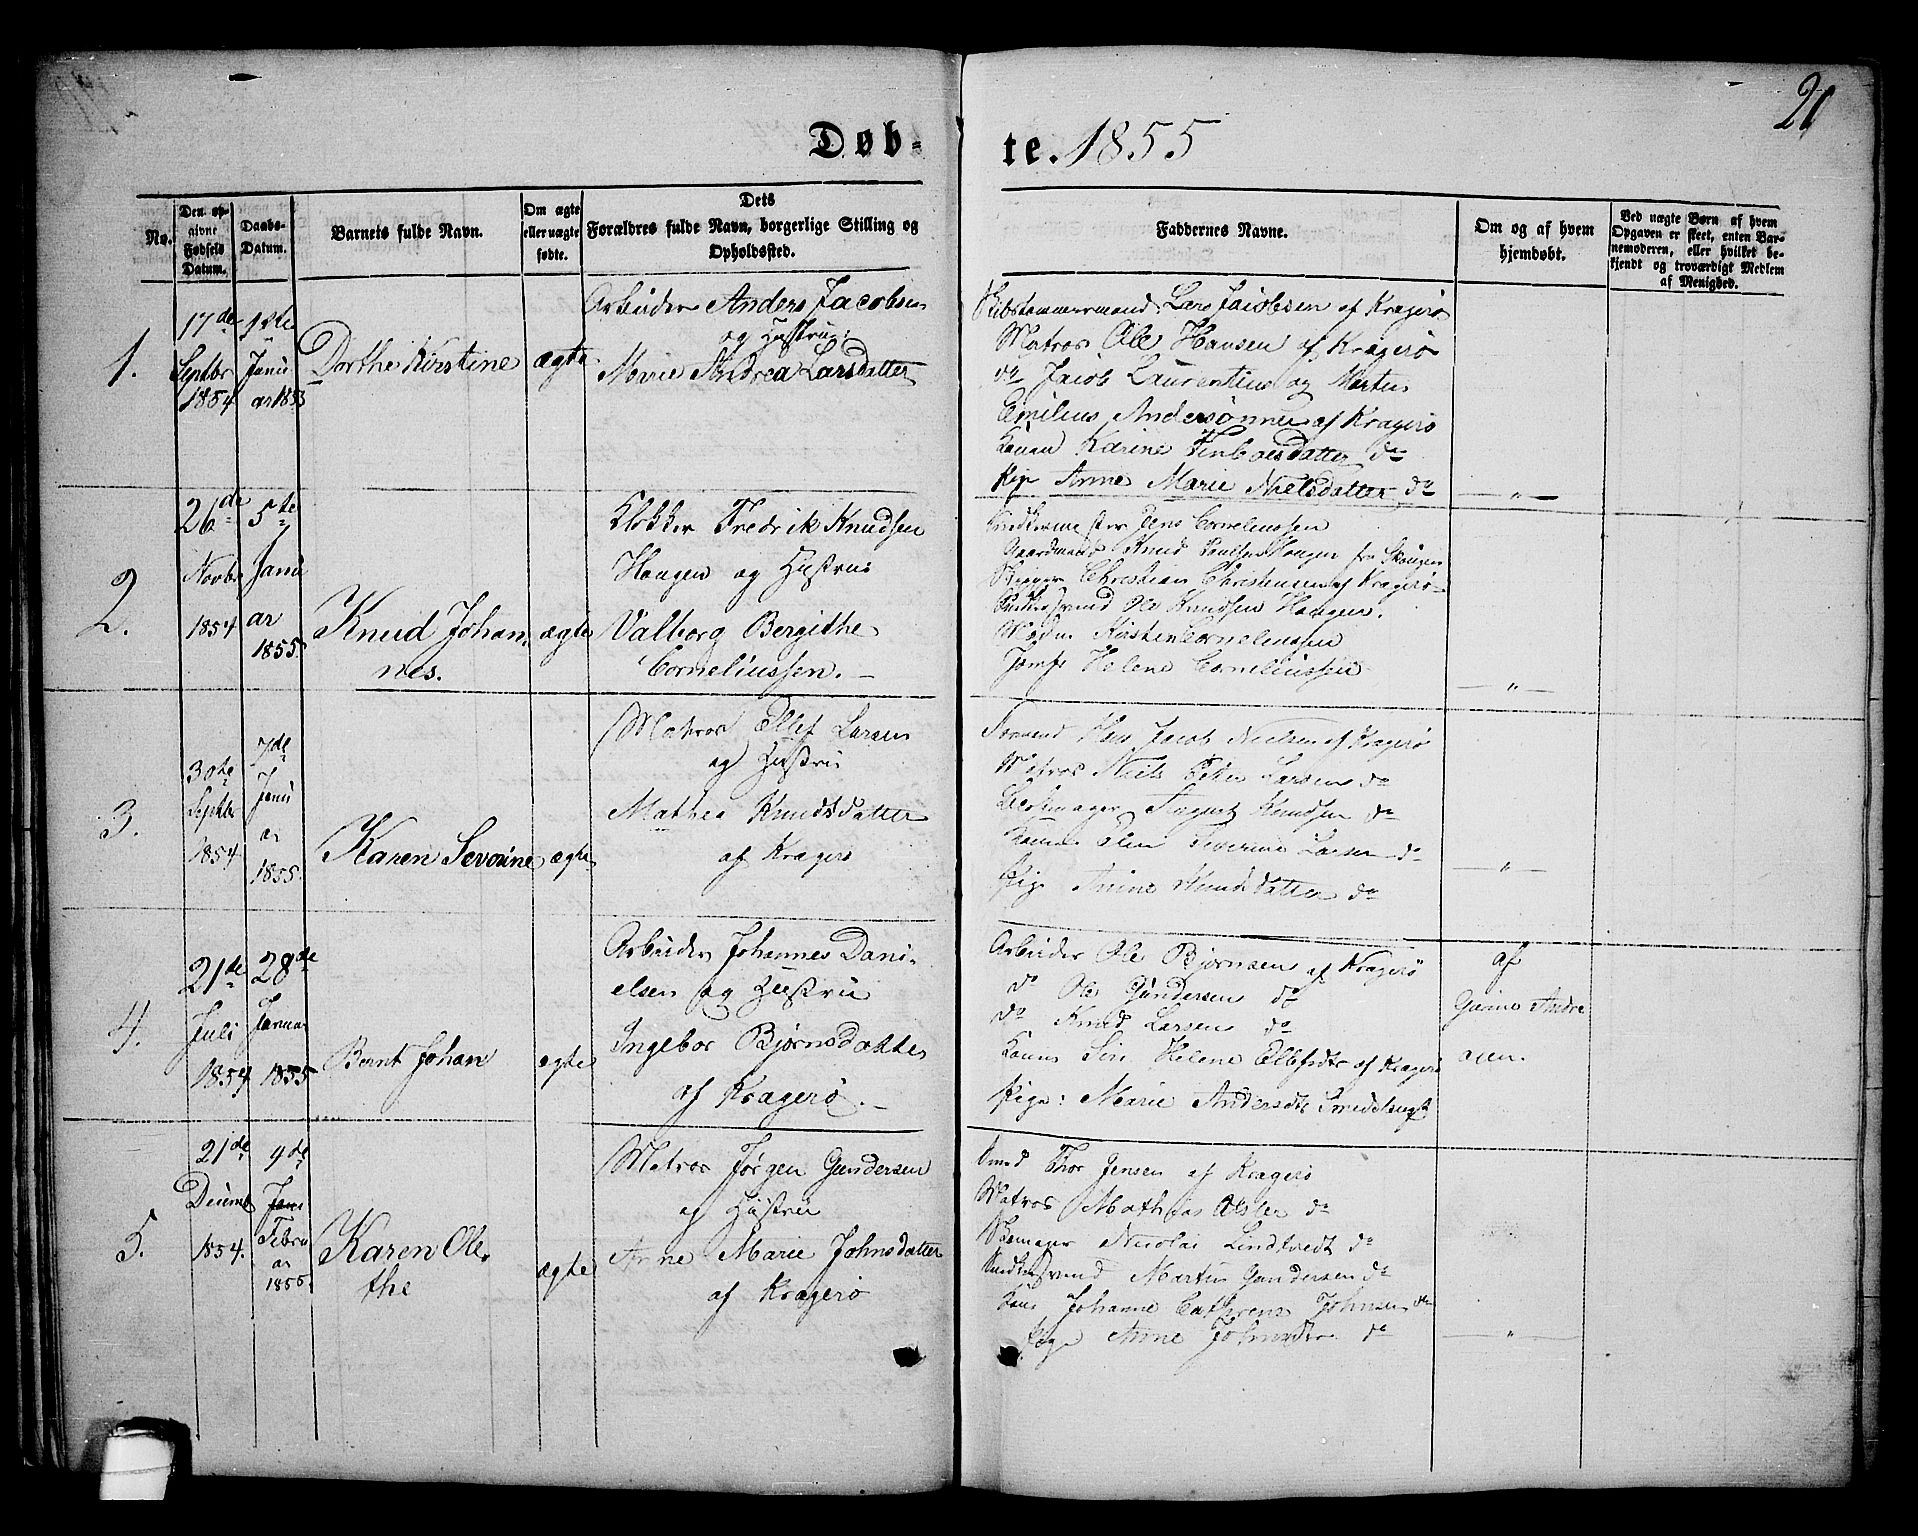 21
Døb-
te. 1855
No.
Den op-
givne
Fødsels
Datum.
Daabs-
Datum.
Barnets fulde Navn.
Om ægte
eller uægte
fødte.
Dets
Forældres fulde Navn, borgerlige Stilling og
Opholdssted.
Faddernes Navne.
Om og af hvem
hjemdøbt.
Ved uægte Børn af hvem
Opgaven er skeet, enten Bar-
nemoderen, eller hvilket be-
kjendt og troværdigt Medlem
af Menighed.
1.
17de
Septbr
1854
1ste
Janu
ar 1855
Dorthe Kirstine
ægte
Arbeider Anders Jacobsen
og Hustru:
Marie Andrea Larsdatter
Skibstømmermand: Lars Jacobsen af Kragerø
Matros Ole Hansen af Kragerø
do Jacob Laurentius og Martin
Emilius Andersønner af Kragerø
Konen Karine Finboesdatter do
Pige Anne Marie Nielsdatter do
— " —
2.
26de
Novbr
1854
5te
Janu
ar
1855.
Knud Johan
nes.
ægte
Klokker Fredrik Knudsen
Haagen og Hustru
Valborg Bergithe
Corneliussen. —
Jens Corneliussen
Gaardmand Knud Haagen fra
Skipper Christian Christensen af Kragerø
Ole Knudsen Haagen.
Mdm Kirsten Corneliussen
Jomfr Helene Corneliussen
— " —
3.
30te
Septbr
1854
7de
Janu
ar
1855.
Karen Severine
ægte
Matros Ellef Larsen
og Hustru
Mathea Knudsdatter
af Kragerø
Hans Jacob Nielsen af Kragerø
Matros Niels Peter Larsen do
August Knudsen do
Konen Severine Larsen do
Pige Anine Knudsdatter do
— " —
4.
21de
Juli
1854
28de
Januar
1855
Bernt Johan
ægte
Arbeider Johannes Dani-
elsen og Hustru
Ingebor Bjørnsdatter
af Kragerø. —
Arbeider Ole Bjørnsen af Kragerø
do Ole Gundersen do
do Knud Larsen do
Konen Siri Helene Ellefsdtr af Kragerø
Pige: Marie Andersdtr
af
Gurine Andre
asen.
5.
21de
Decemb
1854.
9de
Janu
Febru
ar
1855.
Karen Ole
the
ægte
Matros Jørgen Gundersen
og Hustru
Anne Marie Johnsdatter
af Kragerø
Smed Thor Jensen af Kragerø
Matros Mathias Olsen do
Nicolai Lindtvedt do
Martin Gundersen do
Kone Johanne Cathrine Johnsen do
Pige Anne do
— " —